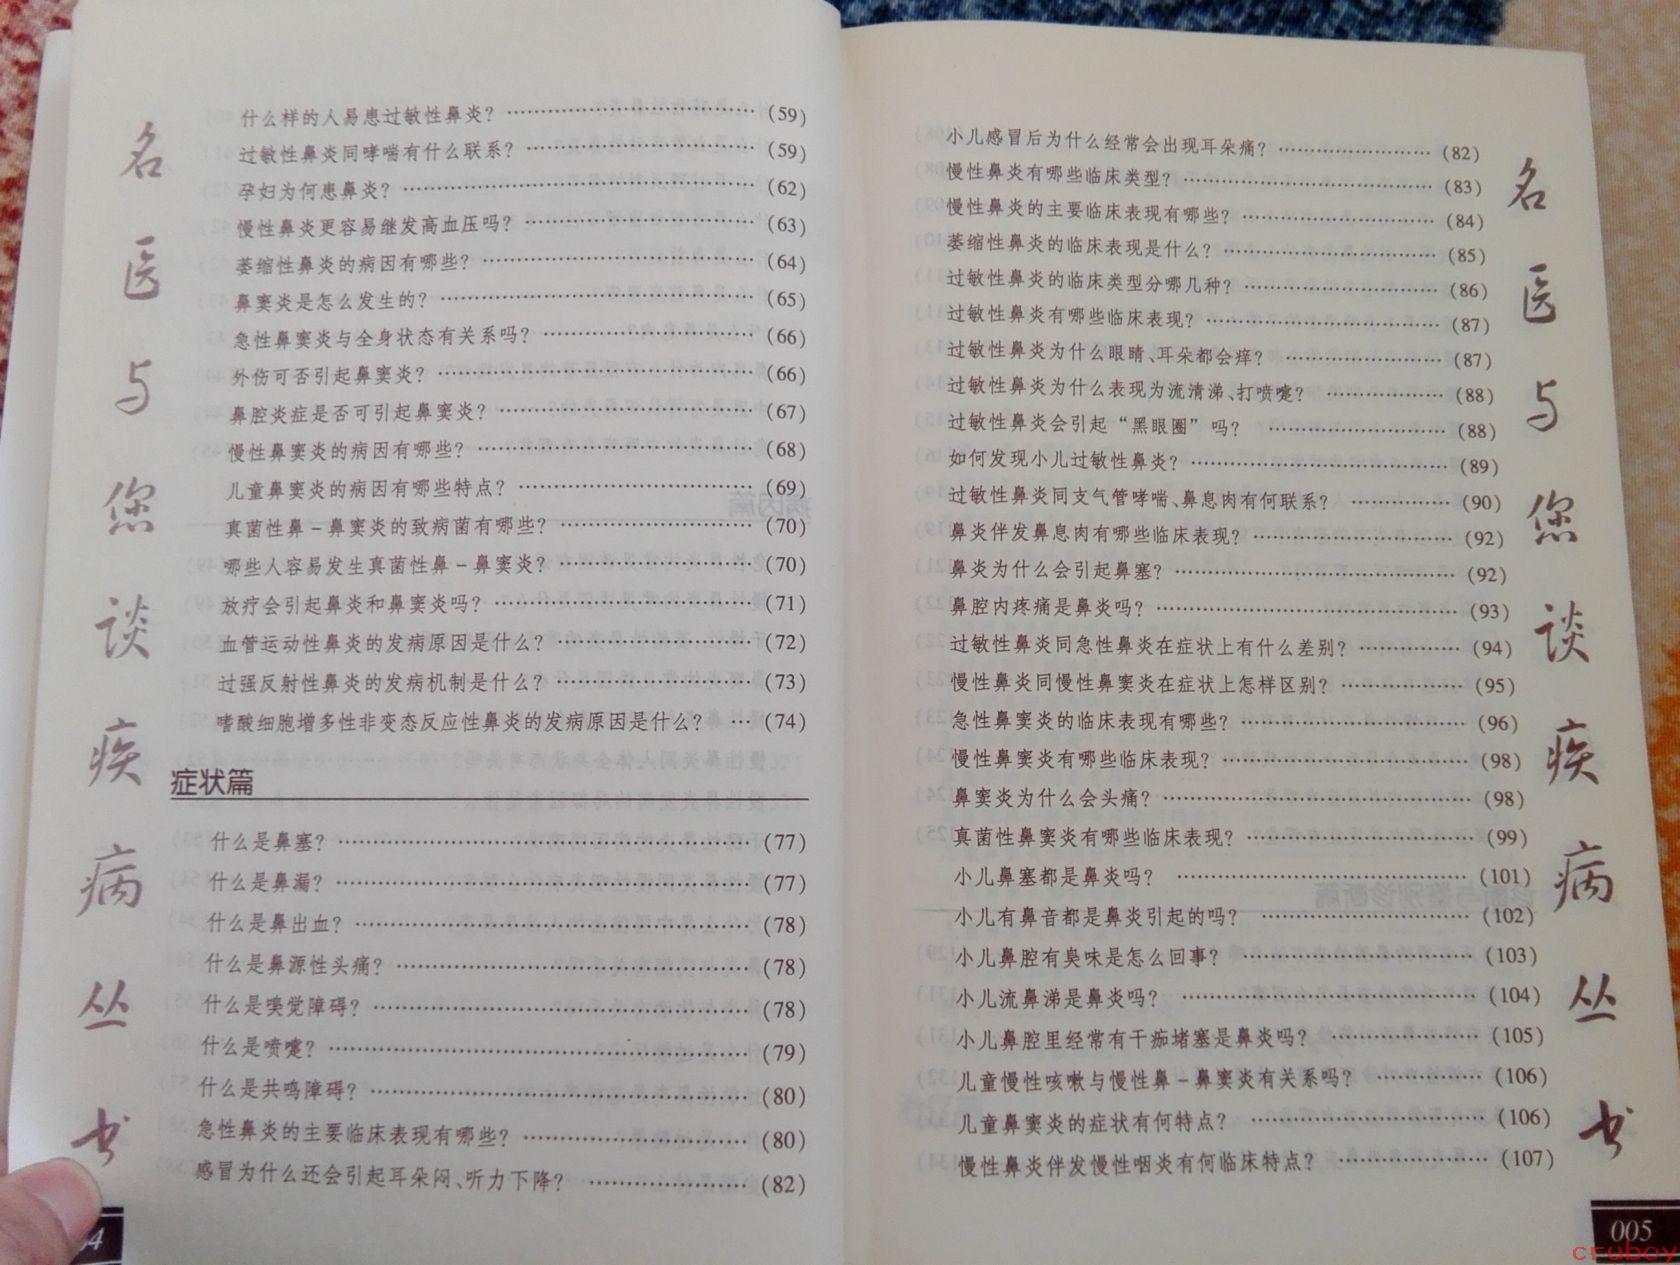 名医与您谈疾病丛书
什么样的人易患过敏性鼻炎？……………………(59)
过敏性鼻炎同哮喘有什么联系？……………………(59)
孕妇为何患鼻炎？……………………(62)
慢性鼻炎更容易继发高血压吗？……………………(63)
萎缩性鼻炎的病因有哪些？……………………(64)
鼻窦炎是怎么发生的？……………………(65)
急性鼻窦炎与全身状态有关系吗？……………………(66)
外伤可否引起鼻窦炎？……………………(66)
鼻腔炎症是否可引起鼻窦炎？……………………(67)
慢性鼻窦炎的病因有哪些？……………………(68)
儿童鼻窦炎的病因有哪些特点？……………………(69)
真菌性鼻－鼻窦炎的致病菌有哪些？……………………(70)
哪些人容易发生真菌性鼻－鼻窦炎？……………………(70)
放疗会引起鼻炎和鼻窦炎吗？……………………(71)
血管运动性鼻炎的发病原因是什么？……………………(72)
过强反射性鼻炎的发病机制是什么？……………………(73)
嗜酸细胞增多性非变态反应性鼻炎的发病原因是什么？…(74)
症状篇
什么是鼻塞？……………………(77)
什么是鼻漏？……………………(77)
什么是鼻出血？……………………(78)
什么是鼻源性头痛？……………………(78)
什么是嗅觉障碍？……………………(78)
什么是喷嚏？……………………(79)
什么是共鸣障碍？……………………(80)
急性鼻炎的主要临床表现有哪些？……………………(80)
感冒为什么还会引起耳朵闷、听力下降？……………………(82)
4
小儿感冒后为什么经常会出现耳朵痛？……………………(82)
慢性鼻炎有哪些临床类型？……………………(83)
慢性鼻炎的主要临床表现有哪些？……………………(84)
萎缩性鼻炎的临床表现是什么？……………………(85)
过敏性鼻炎的临床类型分哪几种？……………………(86)
过敏性鼻炎有哪些临床表现？……………………(87)
过敏性鼻炎为什么眼睛、耳朵都会痒？……………………(87)
过敏性鼻炎为什么表现为流清涕、打喷嚏？……………………(88)
过敏性鼻炎会引起“黑眼圈”吗？……………………(88)
如何发现小儿过敏性鼻炎？……………………(89)
过敏性鼻炎同支气管哮喘、鼻息肉有何联系？……………………(90)
鼻炎伴发鼻息肉有哪些临床表现？……………………(92)
鼻炎为什么会引起鼻塞？……………………(92)
鼻腔内疼痛是鼻炎吗？……………………(93)
过敏性鼻炎同急性鼻炎在症状上有什么差别？……………………(94)
慢性鼻炎同慢性鼻窦炎在症状上怎样区别？……………………(95)
急性鼻窦炎的临床表现有哪些？……………………(96)
慢性鼻窦炎有哪些临床表现？……………………(98)
鼻窦炎为什么会头痛？……………………(98)
真菌性鼻窦炎有哪些临床表现？……………………(99)
小儿鼻塞都是鼻炎吗？……………………(101)
小儿有鼻音都是鼻炎引起的吗？……………………(102)
小儿鼻腔有臭味是怎么回事？……………………(103)
小儿流鼻涕是鼻炎吗？……………………(104)
小儿鼻腔里经常有干痂堵塞是鼻炎吗？……………………(105)
儿童慢性咳嗽与慢性鼻－鼻窦炎有关系吗？……………………(106)
儿童鼻窦炎的症状有何特点？……………………(106)
慢性鼻炎伴发慢性咽炎有何临床特点？……………………(107)
名医与您谈疾病丛书
005
cruboy